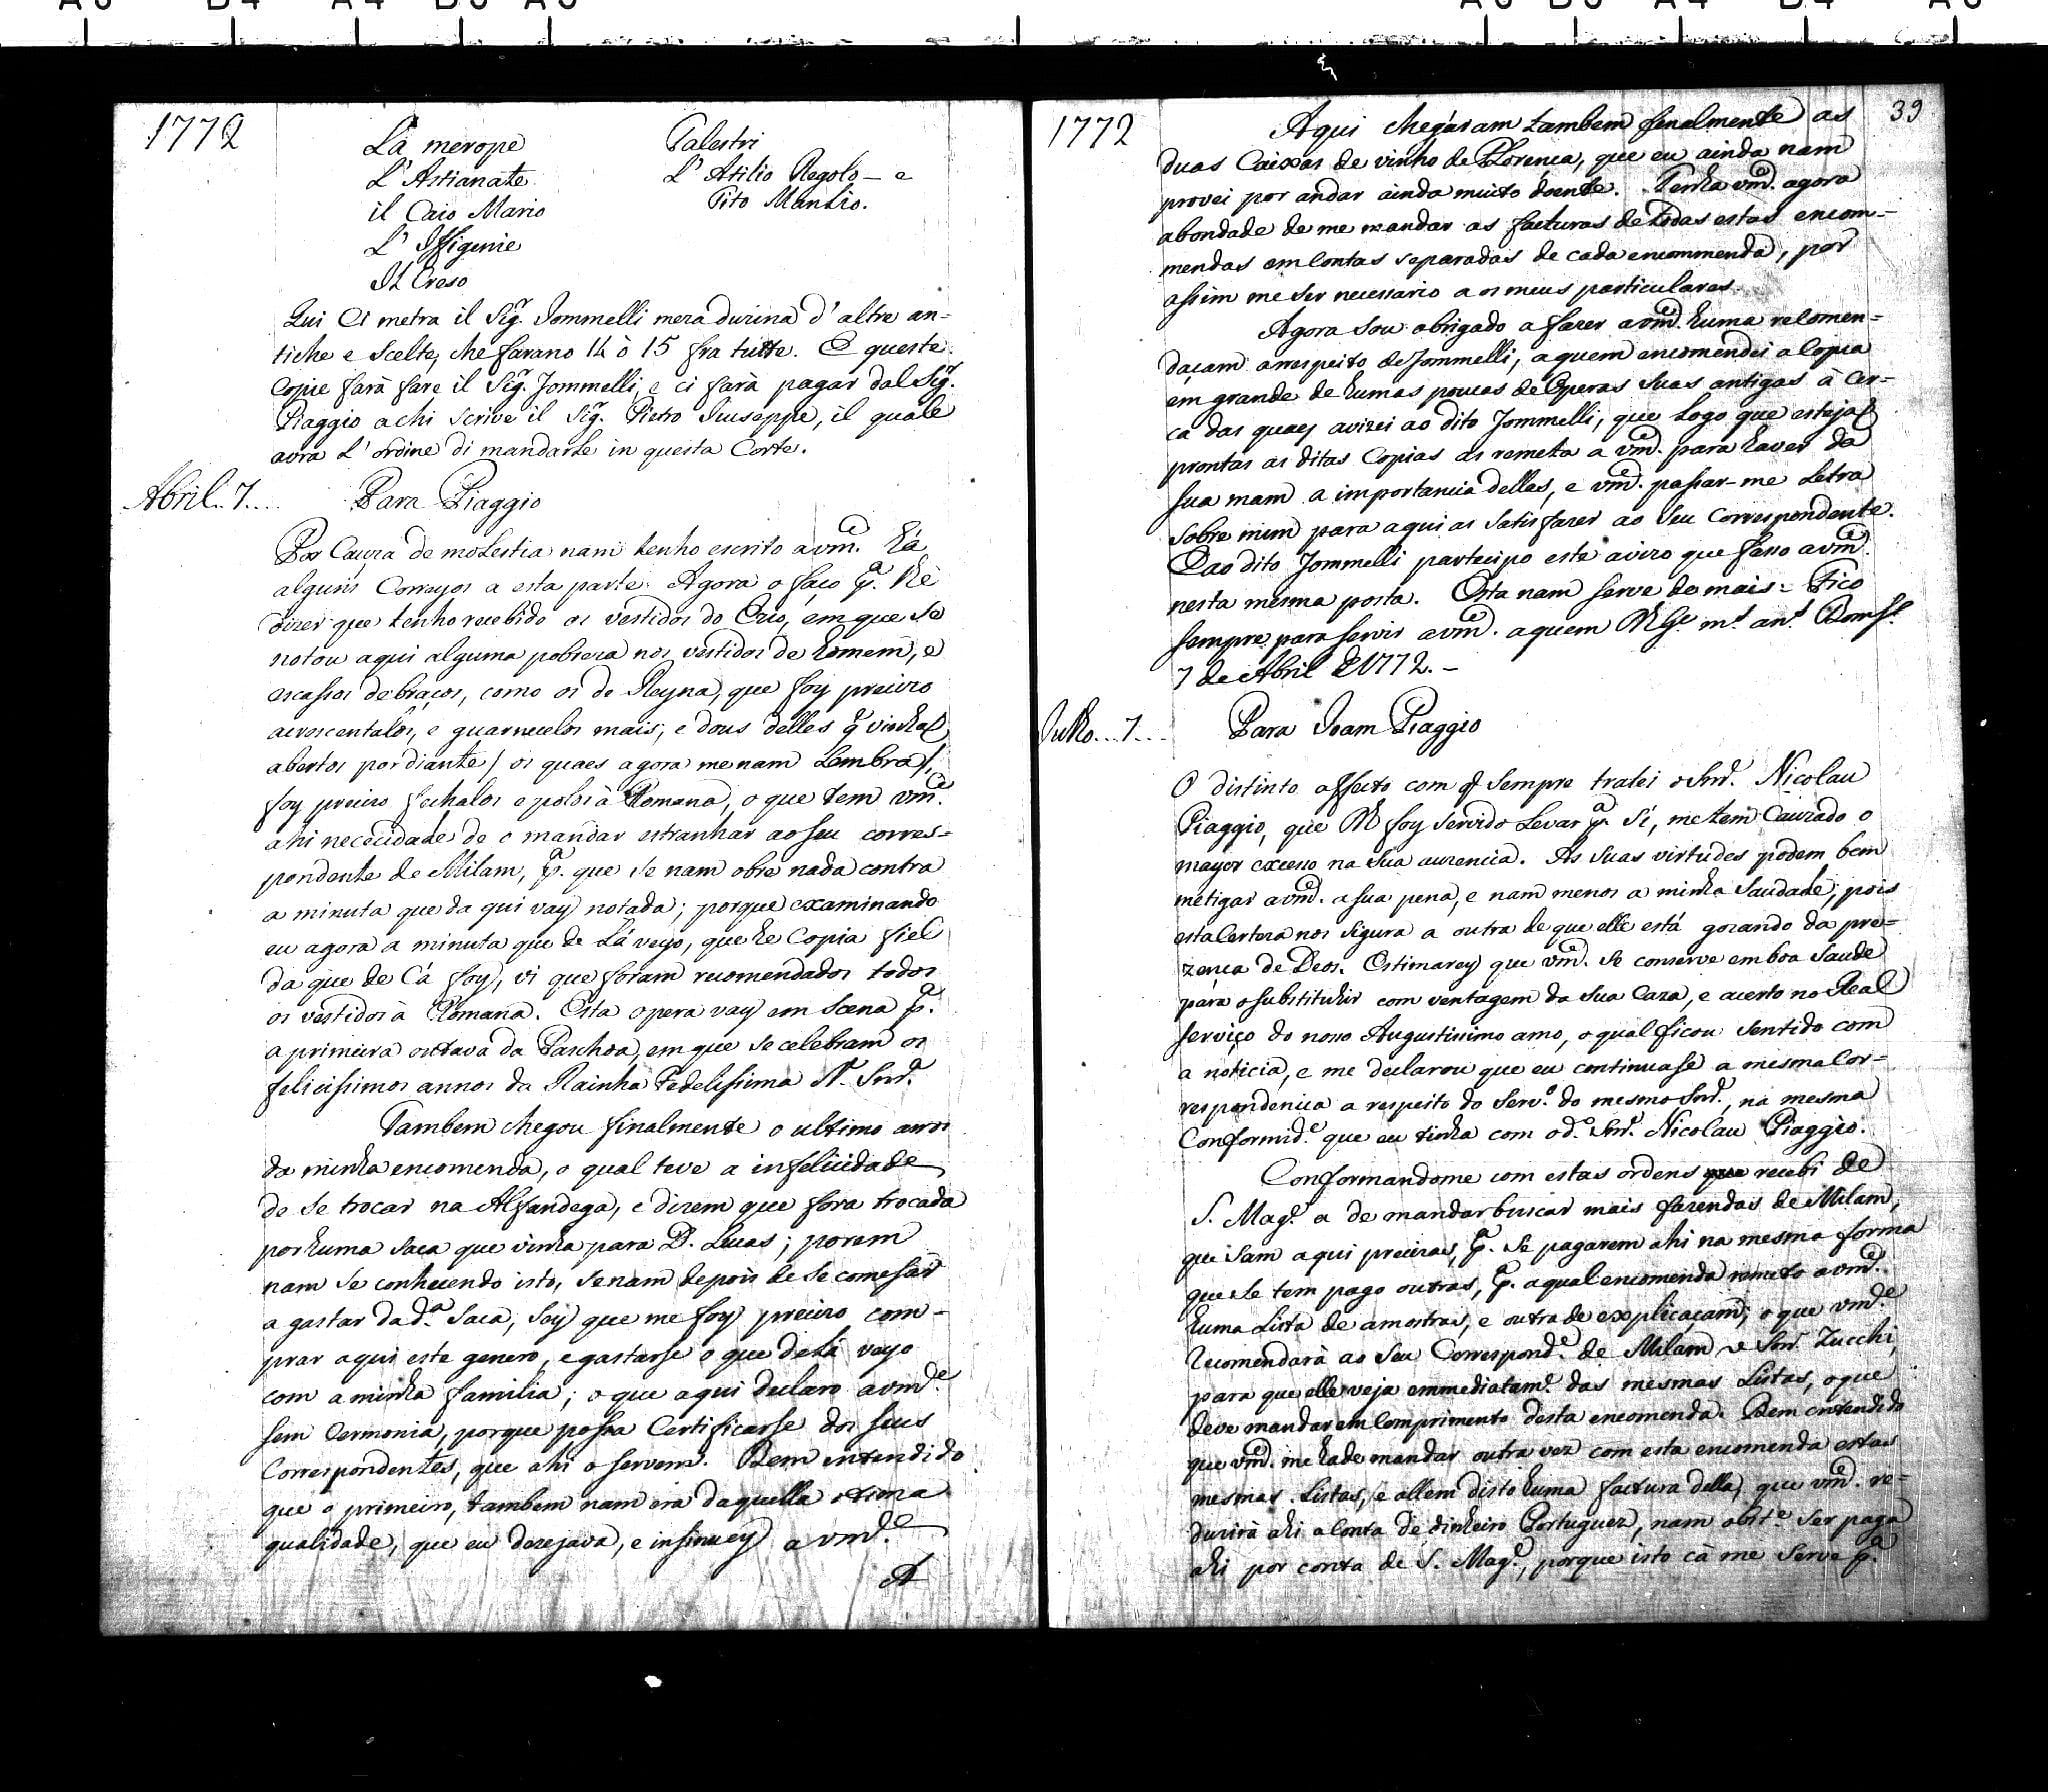 1772
La merope
L'Astianate
il Caio Mario
L'Iffigenie
Il Creso
Talestri
L'Atilio Regolo - e
Tito Manlio.
Qui Ci metra il Sig.r Jommelli d'altre an-
tiche e Scelte, che farano 14 ò 15 fra tutte. E queste
Copie farà fare il Sig.r Jommelli, e ci farà pagar dal Sig.r
Piaggio a chi scrive il Sig.r Pietro Giuseppe, il quale
avra l'ordine di mandarle in questa Corte.
Abril.. 7...
Para Piaggio
Por Cauza de molestia nam tenho escrito a vm.ce há
alguns Correyos a esta parte. Agora o faço p.a lhe
dizer que tenho recebido os vestidos do Ezio, em que se
notou aqui alguma pobreza nos vestidos de homem, e
escassos de braços, como os de Reyna, que foy precizo
acrescentalos, e guarnecelos mais; e dous delles q̃ vinhaõ
abertos por diante / os quaes agora me nam Lembra /,
foy precizo fechalos e polos à Romana, o que tem vm.ce
ahi nececidade de o mandar estranhar ao seu corres=
pondente de Milam, p.a que se nam obre nada contra
a minuta que da qui vay notada; porque examinando
eu agora a minuta que de Lá veyo, que he Copia fiel
da que de Cá foy, vi que foram recomendados todos
os vestidos à Romana. Esta opera vay em Scena p.a
a primeira outava da Paschoa, em que se celebram os
felicissimos annos da Rainha Fedelissima N. Snr.a
Tambem chegou finalmente o ultimo arros
da minha encomenda, o qual teve a infelicidade
de se trocar na Alfandega, e dizem que fora trocada
por huma saca que vinha para D. Lucas; porem
nam se conhecendo isto, senam depois de se comesar
a gastar da d.a saca, sey que me foy precizo com-
prar aqui este genero, e gastarse o que de Lá veyo
com a minha familia; o que aqui declaro a vm.ce
sem Cermonia, porque possa Certificarse dos seus
Correspondentes, que ahi o servem. Bem entendido
que o primeiro, tambem nam era daquella otima
qualidade, que eu dezejava, e insinuey a vm.ce
A
1772
39
Aqui chegáram tambem finalmente as
duas Caixas de vinho de Florença, que eu ainda nam
provei por andar ainda muito doente. Tenha vm.ce agora
abondade de me mandar as facturas de todas estas encom-
mendas em Contas separadas de cada encommenda, por
assim me ser necessario a os meus particulares.
Agora sou obrigado a fazer a vm.ce huma recomen=
daçam a respeito de Jommelli, a quem encomendei a Copia
em grande de humas poucas de Operas suas antigas à cer=
ca das quaes avizei ao dito Jommelli, que logo que estejaõ
prontas as ditas Copias as remeta a vm.ce para haver da
sua mam a importancia dellas, e vm.ce passar-me Letra
sobre mim para aqui as satisfazer ao seu Correspondente.
E ao dito Jommelli partecipo este avizo que fasso a vm.ce
nesta mesma posta. Esta nam serve de mais. Fico
sempre para servir a vm.ce a quem D.s G.e m.s an.s
7 de Abril de 1772. -
Julho... 7...
Para Joam Piaggio
O distinto affecto com q̃ sempre tratei o Snr. Nicolau
Piaggio, que D.s foy servido Levar p.a Sí, me tem Cauzado o
mayor excesso na sua auzencia. As suas virtudes podem bem
metigar a vm.ce a sua pena, e nam menos a minha Saudade, pois
esta Certeza nos segura a outra de que elle está gozando da pre=
zença de Deos. Estimarey que vm.ce se conserve em boa Saude
para o substituhir com ventagem da sua Caza, e acerto no Real
serviço do nosso Augustissimo amo, o qual ficou sentido com
a noticia, e me declarou que eu continuase a mesma Cor=
respondencia a respeito do Serv.o do mesmo Snr., na mesma
Conformid.e que eu tinha com o d.o Snr. Nicolau Piaggio.
Conformandome com estas ordens recebi de
S. Mag.e a de mandar buscar mais fazendas de Milam,
que sam aqui precizas, p.a se pagarem ahi na mesma forma
que se tem pago outras, p.a a qual encomenda remeto a vm.ce
huma Lista de amostras, e outra de explicaçam; o que vm.ce
recomendarà ao seu Correspond.e de Milam o Snr. Zucchi,
para que elle veja emmediatam.e das mesmas Listas, o que
deve mandar em Comprimento desta encomenda. Bem entendido
que vm.ce me hade mandar outra vez com esta encomenda estas
mesmas Listas, e allem disto huma factura della, que vm.ce re=
duzirà ahi a Conta de dinheiro Portuguez, nam obst.e ser paga
ahi por conta de S. Mag.e, porque isto cà me serve p.a